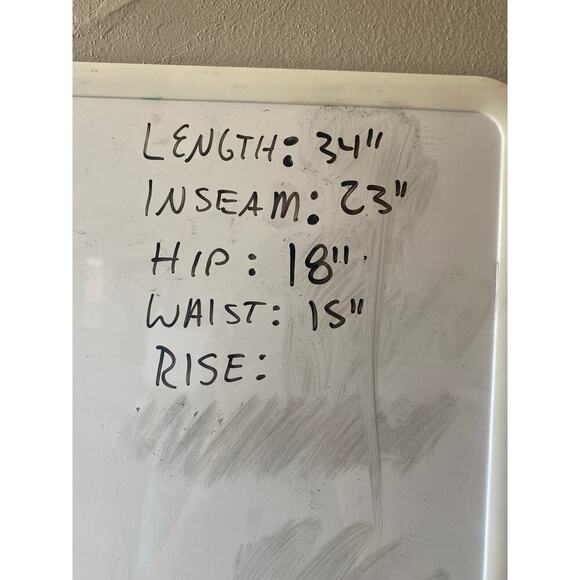 LENGTH: 34"
INSEAM: 23"
HIP: 18"
WAIST: 15"
RISE: